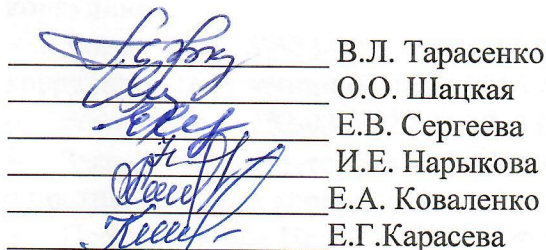 В.Л. Тарасенко
О.О. Шацкая
Е.В. Сергеева
И.Е. Нарыкова
Е.А. Коваленко
Е.Г.Карасева